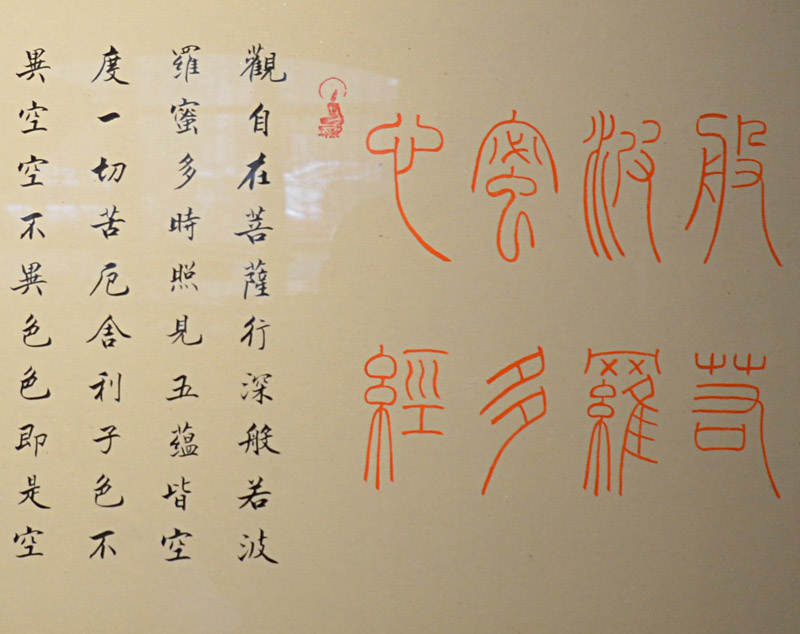 般若
波羅
蜜多
心經
觀自在菩薩行深般若波
羅蜜多時照見五蘊皆空
度一切苦厄舍利子色不
異空空不異色色即是空